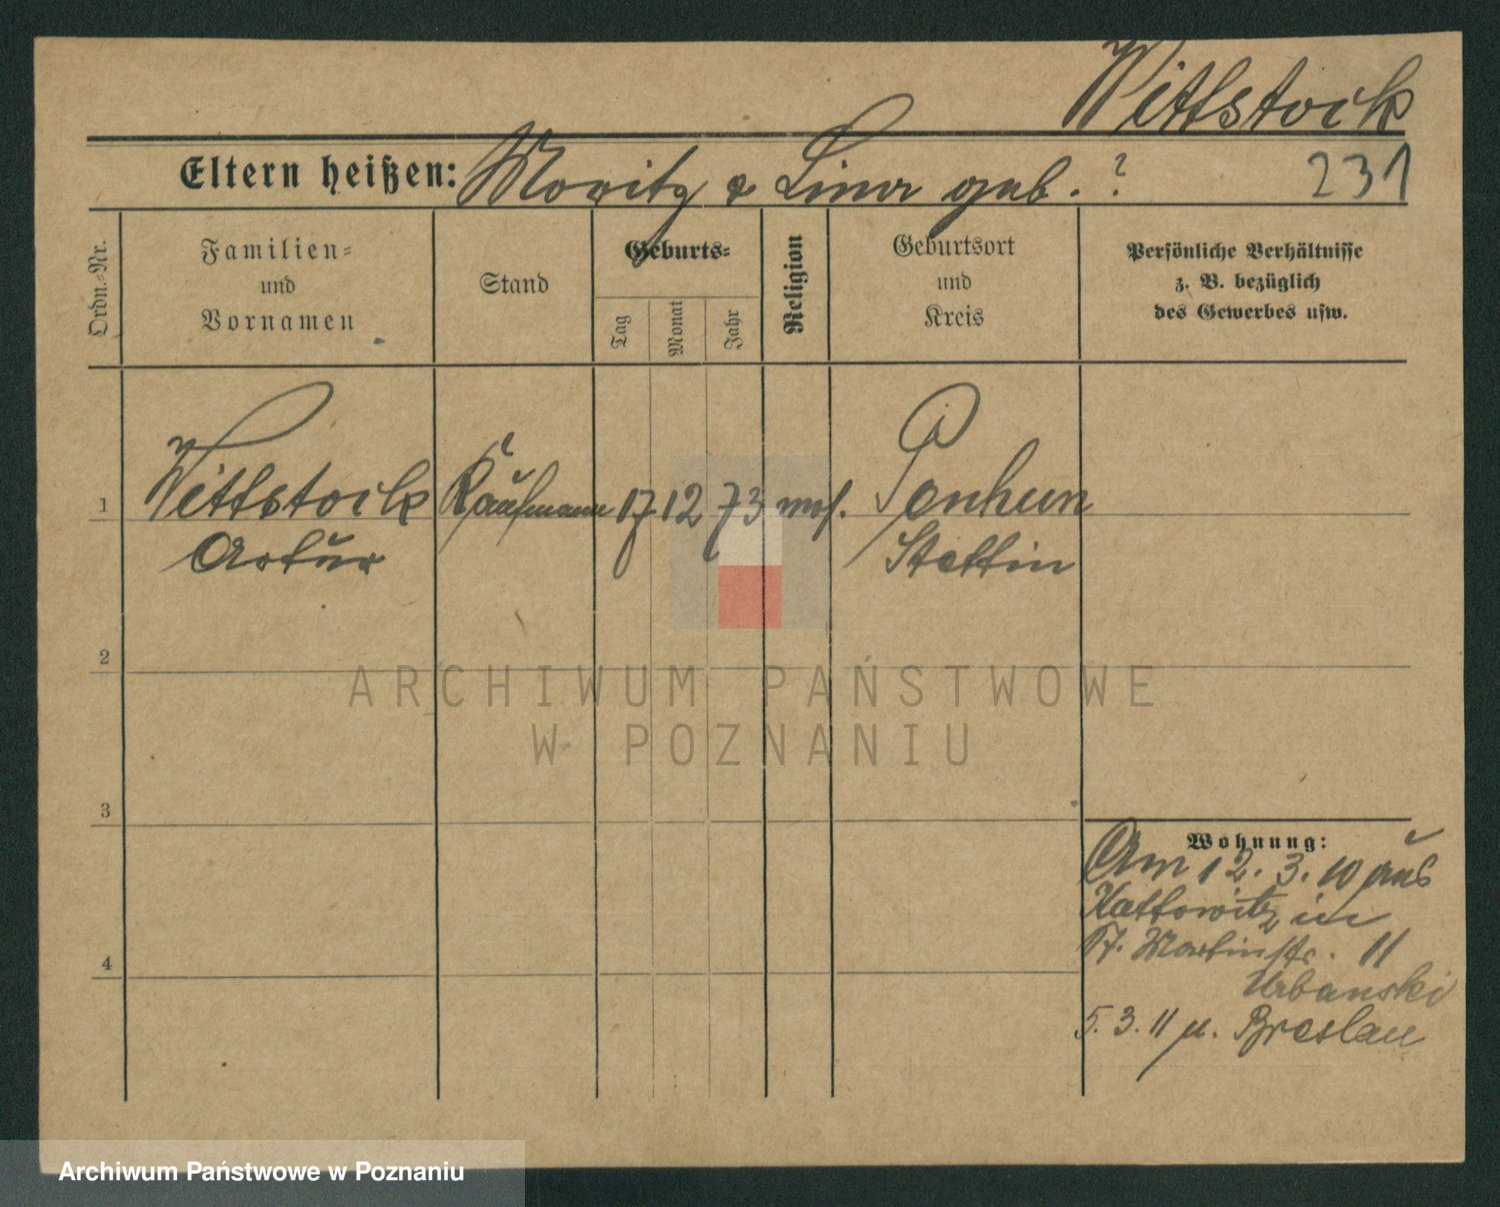 Wittstock
Eltern heißen: Moritz & Lina geb. ?
231
Ordn.-Nr.
Familien-
und
Vornamen
Stand
Geburts-
Tag
Monat
Jahr
Religion
Geburtsort
und
Kreis
Persönliche Verhältnisse
z. B. bezüglich
des Gewerbes usw.
1
Wittstock
Artur
Kaufmann
17
12
73
mos.
Penkun
Stettin
2
ARCHIWUM PAŃSTWOWE
W POZNANIU
3
4
Wohnung:
Am 12. 3. 10 aus
Kattowitz in
St. Martinstr. 11
Urbanski
5. 3. 11 n. Breslau
Archiwum Państwowe w Poznaniu